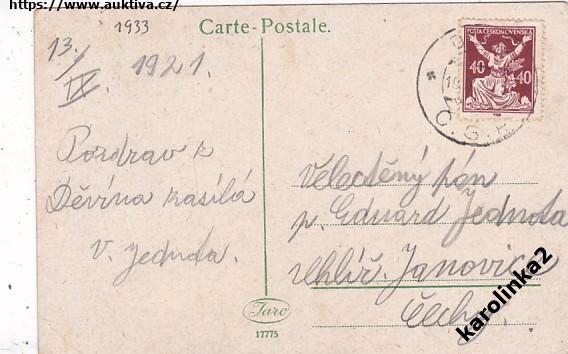 https://www.auktiva.cz/
1933
Carte-Postale.
13./IX. 1921.
Pozdrav z
Děvína zasílá
V. Jednota.
POŠTA ČESKOSLOVENSKÁ
40 40
Č.S.P.
Velectěný pán
p. Eduard Jednota
Uhlíř. Janovice
Čechy
Taro
17775
karolinka2